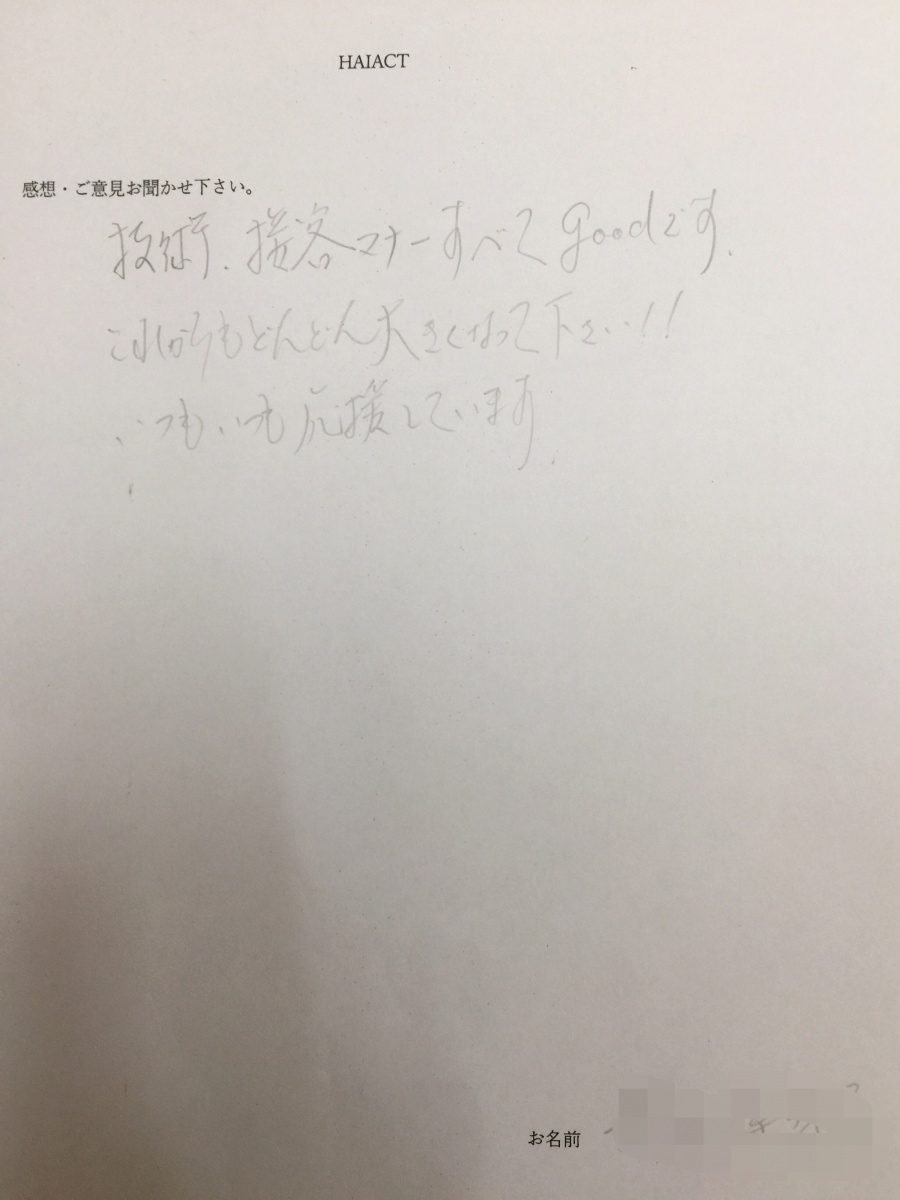 HAIACT
感想・ご意見お聞かせ下さい。
技術、接客マナーすべてgoodです.
これからもどんどん大きくなって下さい!!
いつもいつも応援しています.
お名前